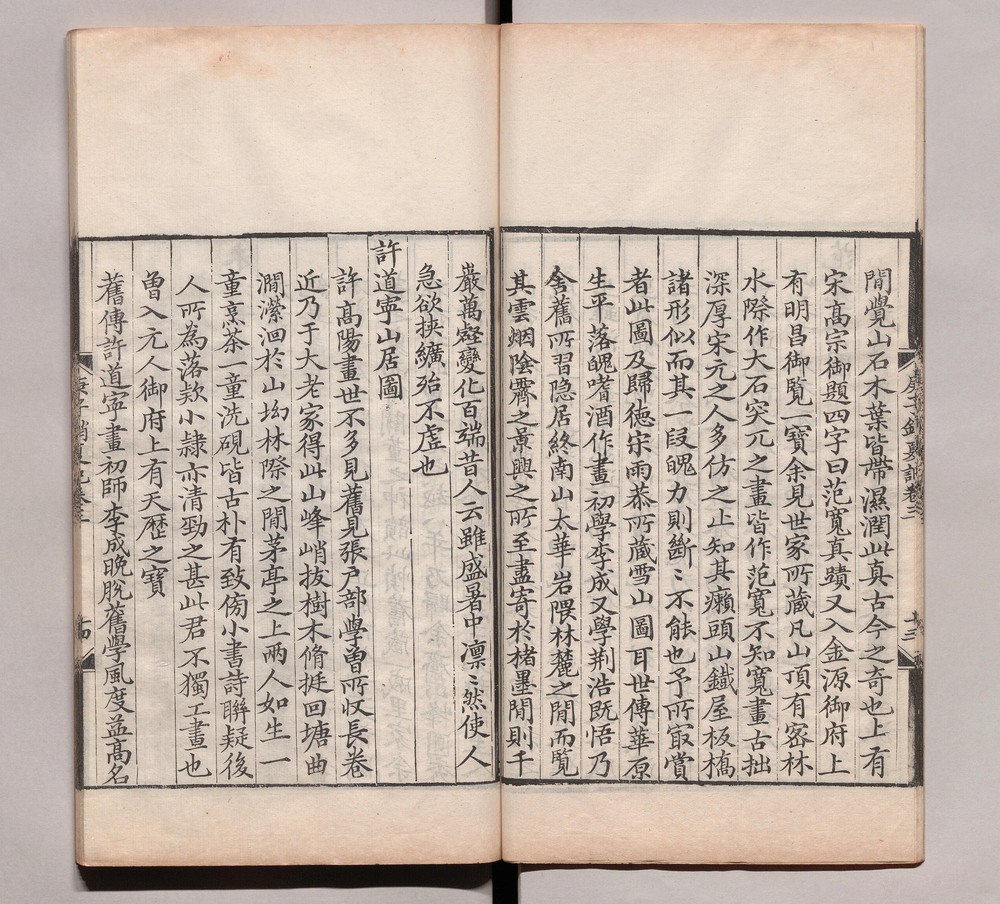 閒覺山石木葉皆帶濕潤此真古今之奇也上有
宋高宗御題四字曰范寬真蹟又入金源御府上
有明昌御覧一寶余見世家所藏凡山頂有宻林
水際作大石突兀之畫皆作范寬不知寬畫古拙
深厚宋元之人多仿之止知其癩頭山鐡屋板橋
諸形似而其一段魄力則斷〻不能也予所㝡賞
者此圖及歸徳宋雨恭所藏雪山圖耳世傳華原
生平落魄嗜酒作畫初學李成又學荆浩既悟乃
舍舊所習隐居終南山太華岩隈林麓之閒而覧
其雲烟陰霽之景興之所至盡寄於楮墨閒則千
巖萬壑變化百端昔人云雖盛暑中凛〻然使人
急欲挾纊殆不虛也
許道寧山居圖
許高陽畫世不多見舊見張户部學曽所收長卷
近乃于大老家得此山峰峭拔樹木脩挺回塘曲
澗瀠洄於山坳林際之閒茅亭之上兩人如生一
童烹茶一童洗硯皆古朴有致傍小書詩聨疑後
人所為落欵小隷亦清勁之甚此君不獨工畫也
曽入元人御府上有天歷之寶
舊傳許道寧畫初師李成晚脫舊學風度益高名
庚子銷夏記卷三
十三
庚子銷夏記卷三
十四